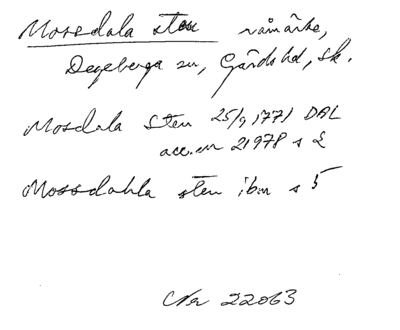 Mossdala sten råmärke,
Degeberga sn, Gärds hd, Sk.
Mosdala Sten 25/9 1771 DAL
acc.nr 21978 s 2
Mossdahla sten ibm s 5
22063